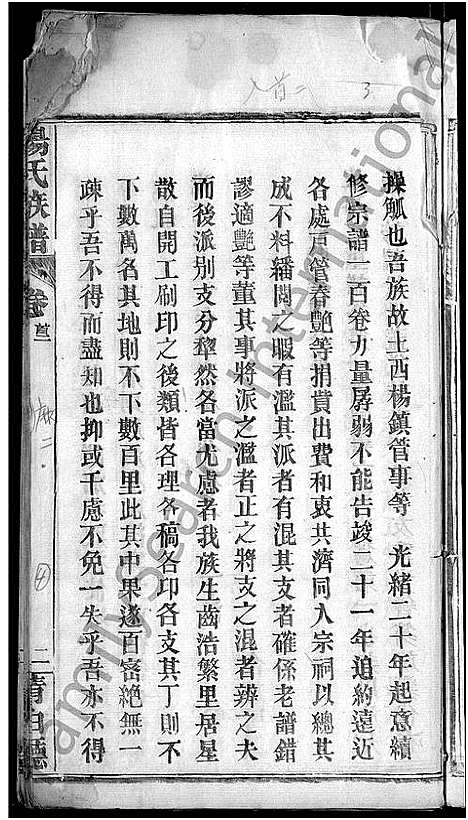 操觚也吾族故土西楊鎮管事等 光緒二十年起意續
修宗譜一百卷力量孱弱不能告竣二十一年追約遠近
各處戶管春艷等捐貲出費和衷共濟同入宗祠以總其
成不料繙閱之暇有濫其派者有混其支者確係老譜錯
謬適艷等董其事將派之濫者正之將支之混者辨之夫
而後派別支分犂然各當尤慮者我族生齒浩繁里居星
散自開工刷印之後類皆各理各稿各印各支其丁則不
下數萬名其地則不下數百里此其中果遂百密絕無一
疎乎吾不得而盡知也抑或千慮不免一失乎吾亦不得
楊氏族譜 卷首二
二 清白堂
首二
3
二
4
familysearch international